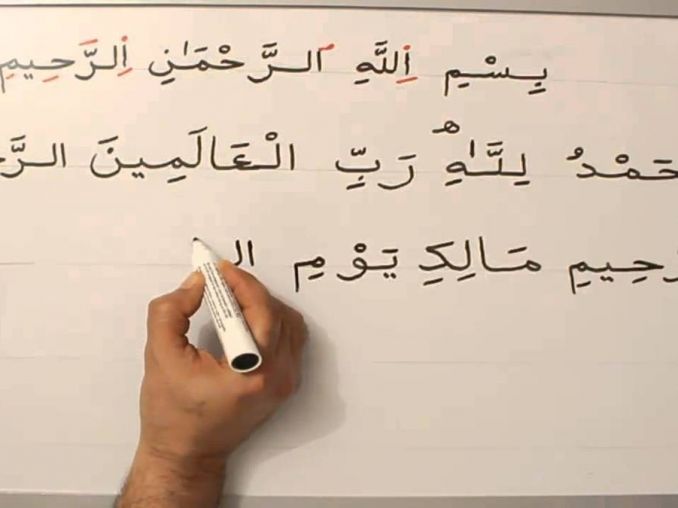 بِسْمِ اللَّهِ الرَّحْمَٰنِ الرَّحِيمِ
حَمْدُ لِلَّٰهِ رَبِّ الْعَالَمِينَ الرَّحـ
رَحِيمِ مَالِكِ يَوْمِ الـ